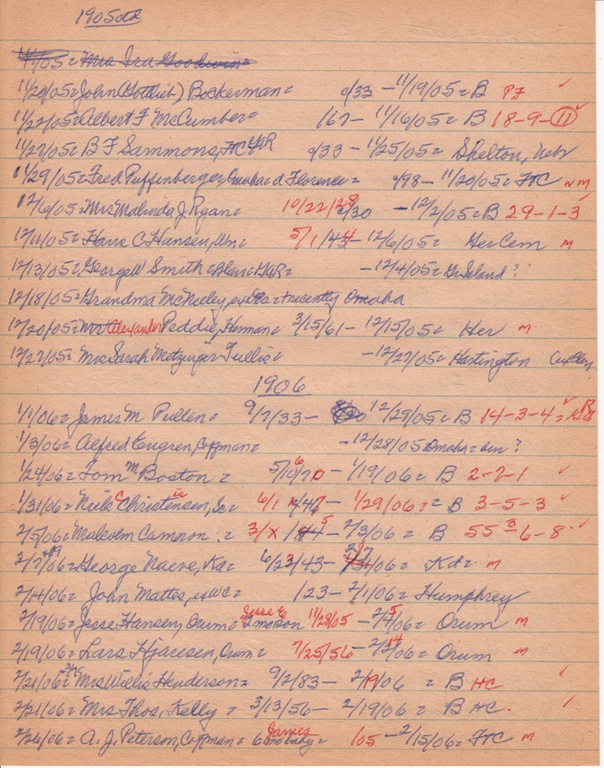 1905
11/20/05 = John (Gottlieb) Bockerman = 1/33 - 11/19/05 = B PF ✓
11/22/05 = Albert F McCumber = /67 - 11/16/05 = B 18-9-11 ✓
11/27/05 = B F Sammons, 1/33 - 11/25/05 = Shelton, Neb
11/29/05 = Fred Puffenberger, Omaha = d Florence = 1/98 - 11/20/05 = FtC NM
12/6/05 = Mrs Malinda J. Ryan = 10/22/28 - 12/2/05 = B 29-1-3 ✓
12/11/05 = Hans C Hansen, 5/1/44 - 12/6/05 = Ger Cem M
12/13/05 = George W Smith = Blair GAR = - 12/4/05 = Gr Island ?
12/18/05 = Grandma McNeeley, recently Omaha
12/20/05 = Alexander Peddie, Herman = 3/15/61 - 12/15/05 = Her M
12/27/05 = Mrs Sarah Metzinger Tullis = - 12/27/05 = Hartington
1906
1/1/06 = James M Pullen = 9/7/33 - 12/29/05 = B 14-3-4 ✓
1/3/06 = Alfred Eugren, Coffman = - 12/28/05 Omaha = ?
1/24/06 = Tom M Boston = 5/10/60 - 1/19/06 = B 2-2-1 ✓
1/31/06 = Niels C Christensen, Sr = 6/1 /46 - 1/29/06 = B 3-5-3 ✓
2/5/06 = Malcolm Cameron = 3/X/ - 2/3/06 = B 55-6-8 ✓
George Naeve, Kd = 6/23/43 - /06 = Kd = M
2/14/06 = John Matter, = 123 - 2/1/06 = Humphrey
2/19/06 = Jesse Hansen, Orum = Jesse E 11/28/05 - 2/5/06 = Orum M
2/19/06 = Lars Hjaresen, Orum = 7/25/56 - /06 = Orum M
2/21/06 = Mrs Willis Henderson = 9/2/83 - 2/19/06 = B HC ✓
2/21/06 = Mrs Thos, Kelly = 3/13/56 - 2/19/06 = B HC. ✓
2/26/06 = A. J. Peterson, Coffman = James baby = /05 - 2/15/06 = FtC M